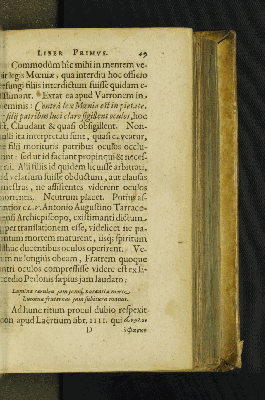 LIBER PRIMUS. 49
Commodùm hîc mihi in mentem ve-
it legis Mœniæ, qua interdiu hoc officio
efungi filiis interdictum fuisse quidam e-
istimant. Extat ea apud Varronem in
eminis: Contrà lex Mænia est in pietate,
filii patribus luci claro sigillent oculos, hoc
st, Claudant & quasi obsigillent. Non-
ulli ita interpretati sunt, quasi caveatur,
e filii morituris patribus oculos occlu-
ant: sed ut id faciant propinqui & neces-
rii. Alii filiis id quidem licuisse arbitrati,
id velatum fuisse obductum, aut clausas
enestras, ne assistentes viderent oculos
morientis. Neutrum placet. Potius as-
entior Antonio Augustino Tarraco-
ensi Archiepiscopo, existimanti dictum
per translationem esse, videlicet ne pa-
entum mortem maturent, iisq; spiritum
dhuc ducentibus oculos operirent. Ve-
m ne longiùs obeam, Fratrem quoque
atri oculos compressisse videre est ex il-
cedio Pedonis sæpius jam laudato;
Lumina cæruleâ jam jamq; natantia morte,
Lumina fraternas jam subitura manus.
Ad hunc ritum procul dubio respexit
on apud Laërtium libr. IIII. qui
D